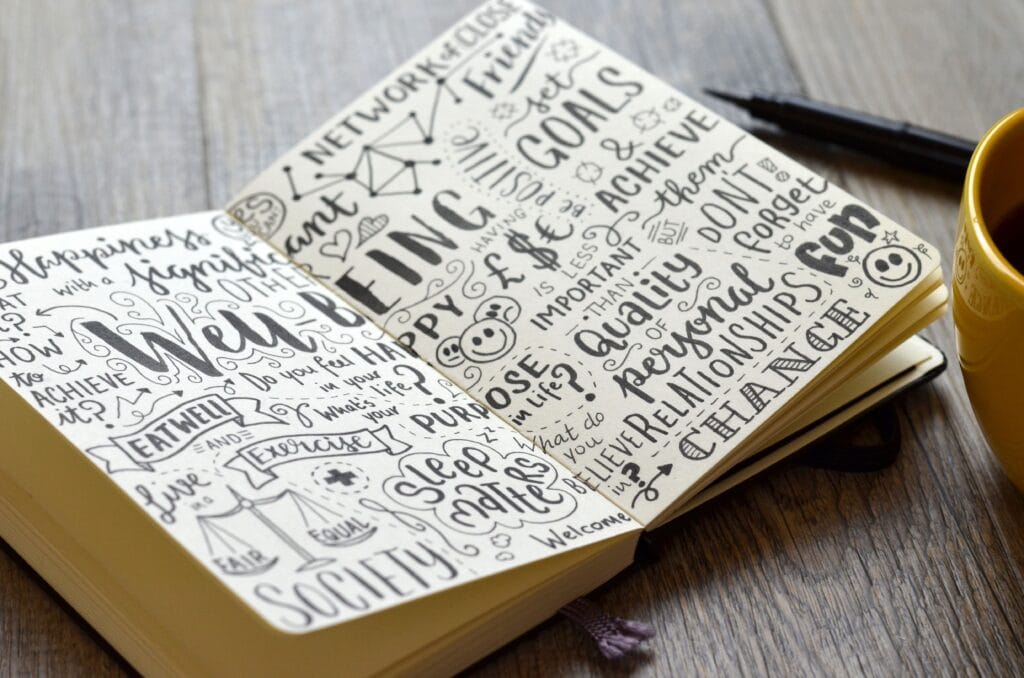 Happiness
with a
significant
OTHER
HOW
to
ACHIEVE
it?
WELL-BEING
Do you feel HAPPY
in your
life?
EATWELL
AND
Exercise
What's
your PURPOSE
in life?
Live
in a
FAIR
EQUAL
SOCIETY
SLEEP
Matters
z
Welcome
NETWORK of CLOSE
Friends
set
GOALS
&
ACHIEVE
them
BUT
DON'T
forget
to have
fun
&
HAVING
£ $ €
IS LESS
IMPORTANT
THAN
Quality
OF
personal
RELATIONSHIPS
What do
you
BELIEVE
in?
CHANGE